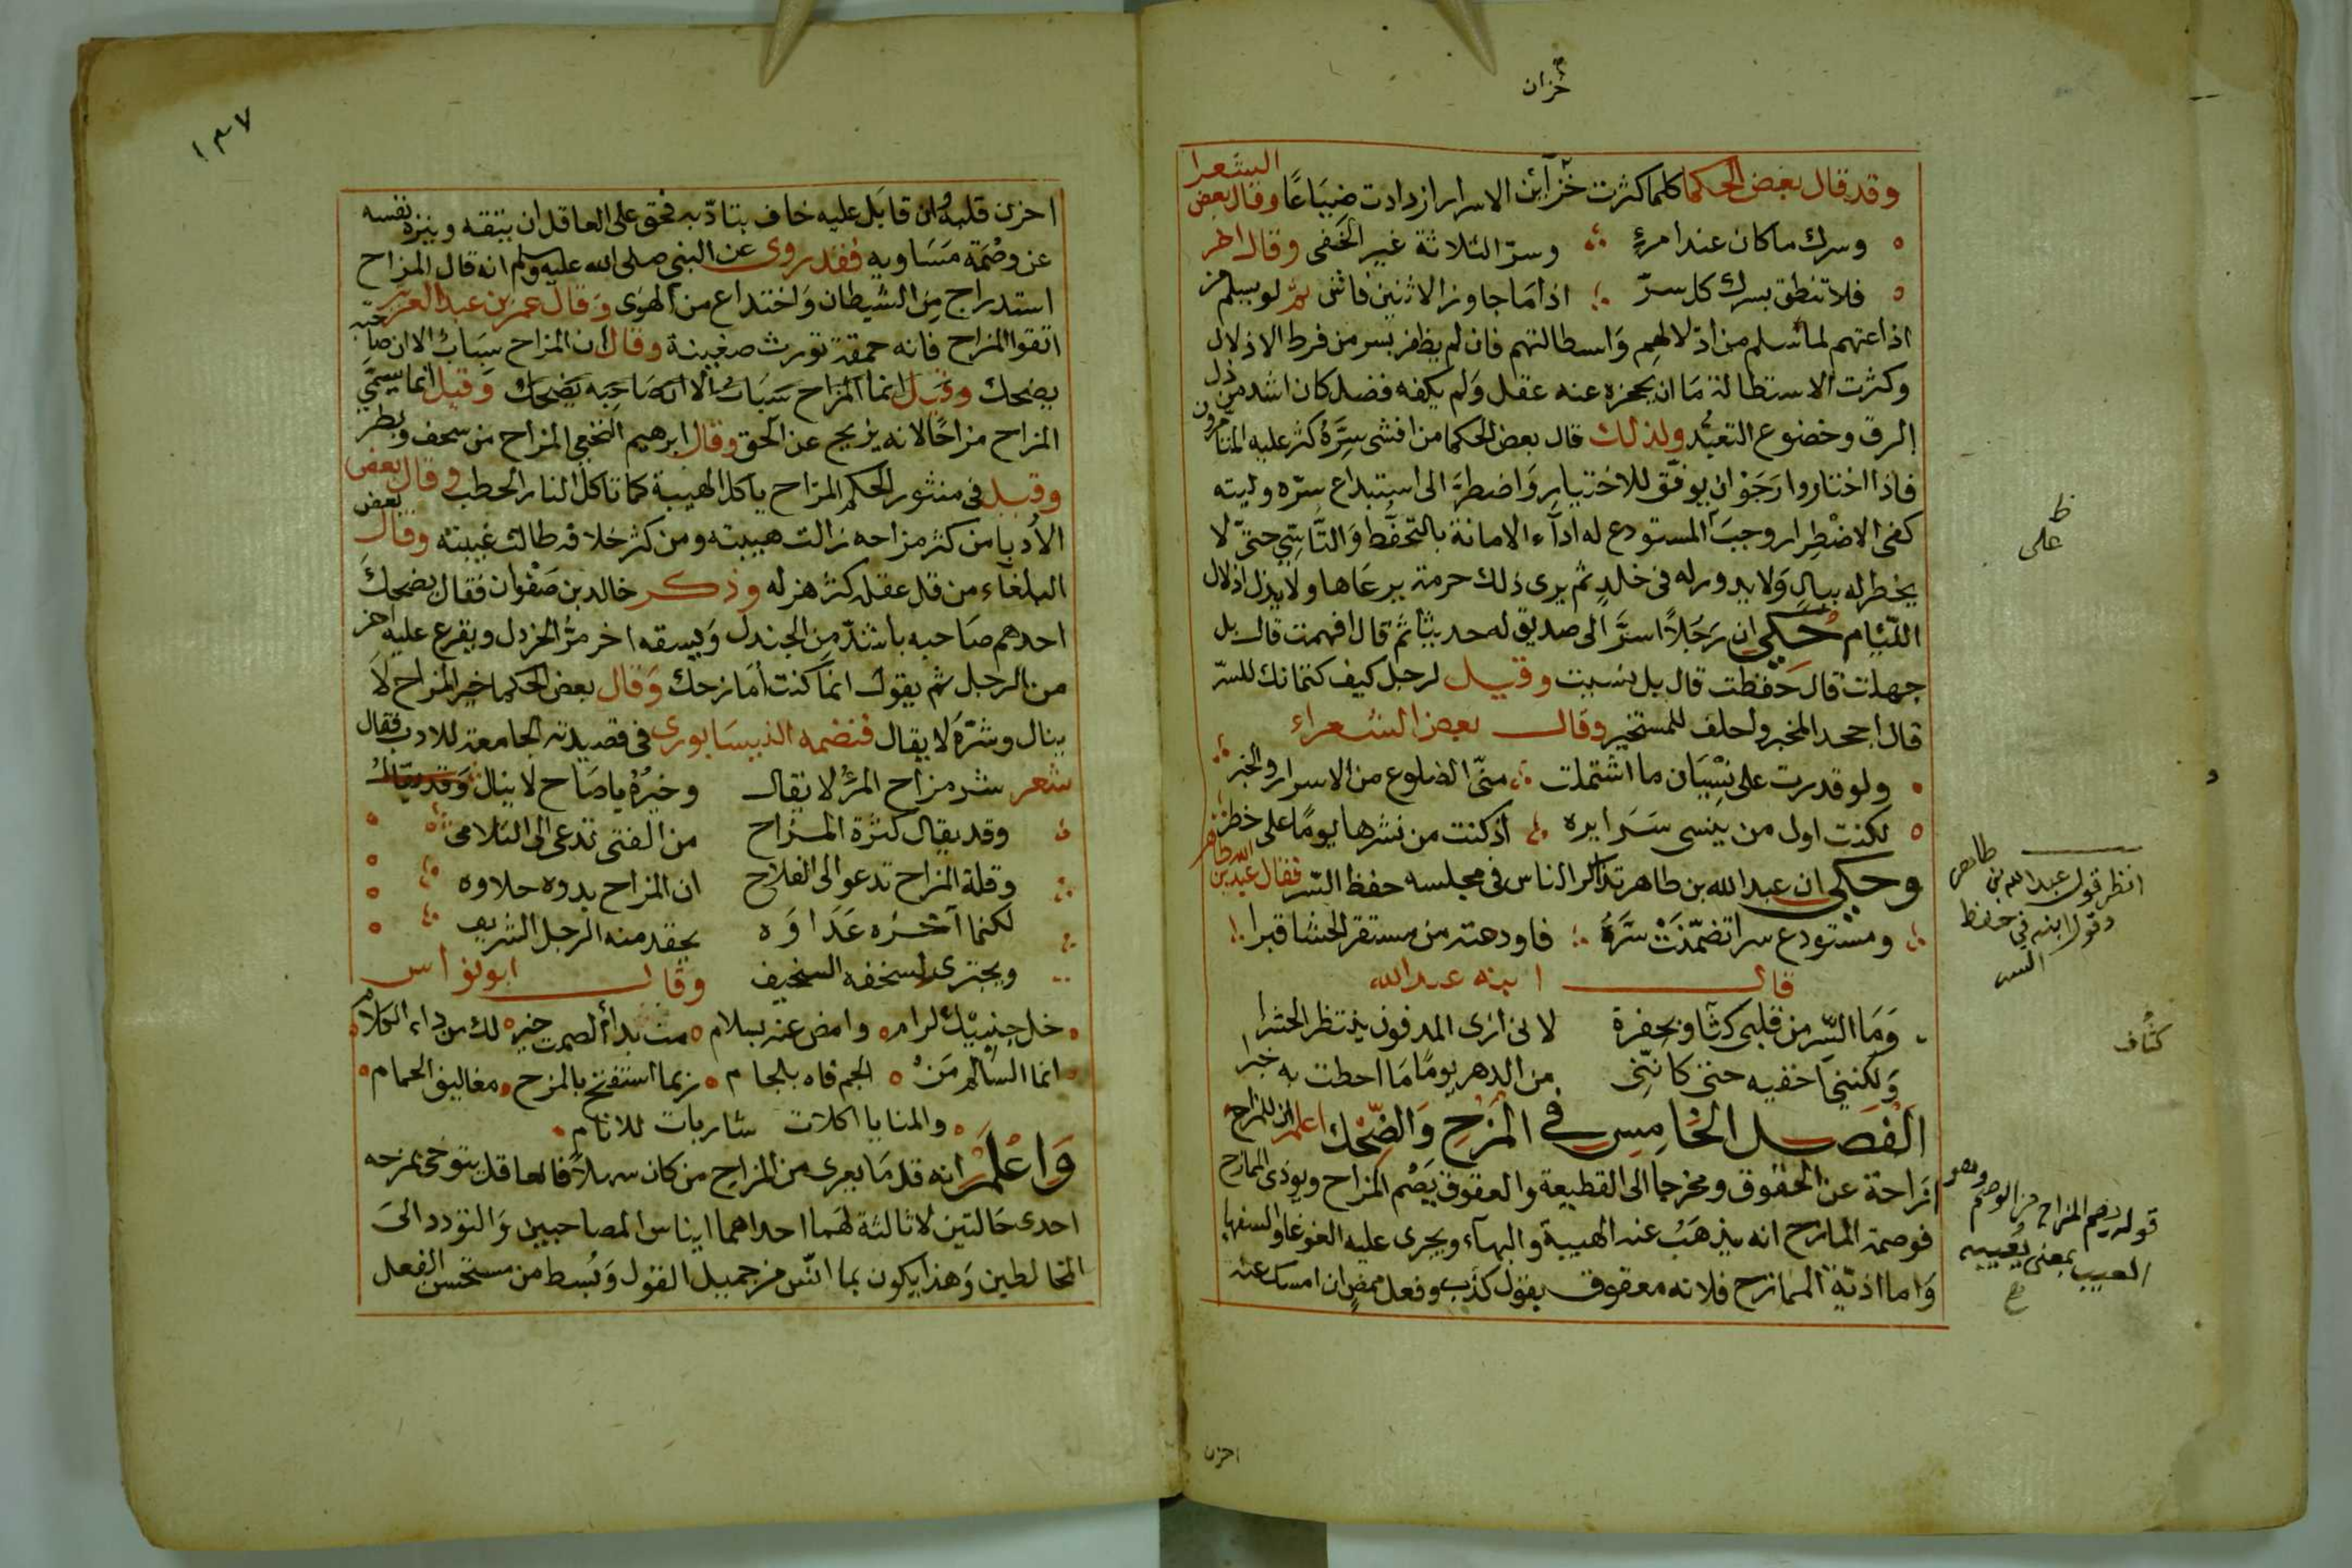 خزان
وقد قال بعض الحكما كلما كثرت خزآئن الاسرار ازدادت ضياعًا وقال بعض الشعرا
وسرك ماكان عند امرئٍ وسرّ الثلاثة غير الخفى وقال اخر
فلا تنطق بسرك كل سرّ اذا ما جاوز الاثنين فاشى ثم لو سلم من
اذاعتهم لما سلم من ادلالهم واسطالتهم فان لم يظفر بسر من فرط الاذلال
وكثرت الاستطالة ما ان يحجزه عنه عقل ولم يكفه فضل كان اشد من ذل
الرق وخضوع التعبُّد ولذلك قال بعض الحكما من افشى سِرَّهُ كثر عليه المتآمرون
فاذا اختاروا رَجَوْ ان يوفّق للاختيار واضطرّ الى استبداع سرّه وليته
كفى الاضطرار وجبَ المستودع له ادآء الامانة بالتحفّظ والتَّاسّي حتىّ لا
يخطر له ببالٍ ولا يدور له فى خلدٍ ثم يرى ذلك حرمة يرعَاها ولا يذل اذلال
اللئيام حُكي ان رَجلاً اسرَّ الى صديق له حديثاً ثم قال افهمت قال بل
جهلت قال حفظت قال بل نسيت وقيل لرجل كيف كتمانك للسرّ
قال اجحد المخبر واحلف للمستخبر وقال بعض الشعراء
ولو قدرت على نسْيَان ما اشتملت منّى الضلوع من الاسرار والخبر
لكنت اول من ينسى سَرَايره اذ كنت من نشرها يومًا على خطر
وحكي ان عبد الله بن طاهر تذاكر الناس فى مجلسه حفظ السّر فقال عبد الله بن طاهر
ومستودع سرا تضمّنَتْ سَرَّهُ فاودعته من مستقر الحشا قبرا
قال ابنه عبد الله
وَمَا السّر من قلبى كثآو بحفرة لانى ارى المدفون ينتظر الحشرا
وَلكننى اخفيه حتى كانّنى من الدهر يومًا مَا احطت به خبرا
اَلْفَصل الخامِس فى المَزْحِ وَالضِّحْك اعلم ان للمزاح
ازاحة عن الحقوق ومخرجا الى القطيعة والعقوق يَصُم المزاح ويوذى الممازح
فوصمة المازح انه يذهَبُ عنه الهيبة والبهآء ويجرى عليه الغوغا والسفهآء
وَاما اذيّة الممازح فلانه معقوق بقول كذبٍ وفعل ممضٍ ان امسك عنه
ظ
على
انظر قول عبد الله بن طاهر
وقول ابنه في حفظ
السر
كثاف
قوله يصم المزاح من الوصم وهو
العيب بمعنى يُعيبه
احزن
١٣٧
احزن قلبهُ وان قابَل عليه خاف بتادّبه فحق على العاقل ان يتقه وينزه نفسه
عن وصْمَة مَسَاويه فقد روى عن النبي صلى الله عليه وسلم انه قال المزاح
استدراج مِن الشيطان واختداع من الهوى وَقال عمر بن عبد العزيز
اتقوا المزاح فانه حمقة تورث ضغينة وقال ان المزاح سبابُ الا ان صاحبه
يضحك وقيل انما المزاح سَبَابُ الا ان صَاحِبه يَضحَك وَقيل انما سمّي
المزاح مزاحًا لانه يزيح عن الحق وقال ابرهيم النخعي المزاح من سخف وبطر
وقيل فى منثور الحكم المزاح ياكل الهيبة كما تاكل النار الحطب وقال بعض
الأدبا من كثر مزاحه زالت هيبته ومن كثر خلافه طالت غيبته وقال بعض
البلغآء من قل عقله كثر هزله وذكر خالد بن صَفْوان فقال يضحكَ
احدهم صَاحبه باشدّ مِن الجندل وَيسقه اخر مرُّ الخردل ويفرغ عليه اخر
من الرجل ثم يقول انما كنت أمَازحك وَقال بعض الحكما خير المزاح لَا
ينال وشرّهَ لا يقال فنضمه النيسَابورى فى قصيدته الجامعة للادب فقال
شعر شر مزاح المرُ لا يقال وخيرُهُ ياصَاح لا ينال
وقد يقال كثرة المزاح من الفتى تدعى الى التلاحى
وقلة المزاح تدعو الى الفلاح ان المزاح بدوه حلاوه
لكنما آخَرُه عَدَاوَه يحقد منه الرجل الشريف
ويجترى لسخفه السخيف وقال ابو نواس
خل جنبيْك لرام وامض عنه بسلام مت بدأ الصمت خير لك من داء الكلام
انما السالم مَنْ الجم فاه بلجام ربما استفتح بالمزح مغاليق الحمام
والمنايا اكلات شاربات للانام
وَاعْلَمْ انه قل مَا يعرى من المزاح من كان سهلاً فالعاقل يتوخى بمزحه
احدى حَالتين لا ثالثة لهَما احداهما ايناس المصاحبين وَالتودد الىَ
المخالطين وَهذا يكون بما انّس من جميل القول وَبُسط من مستحسن الفعل